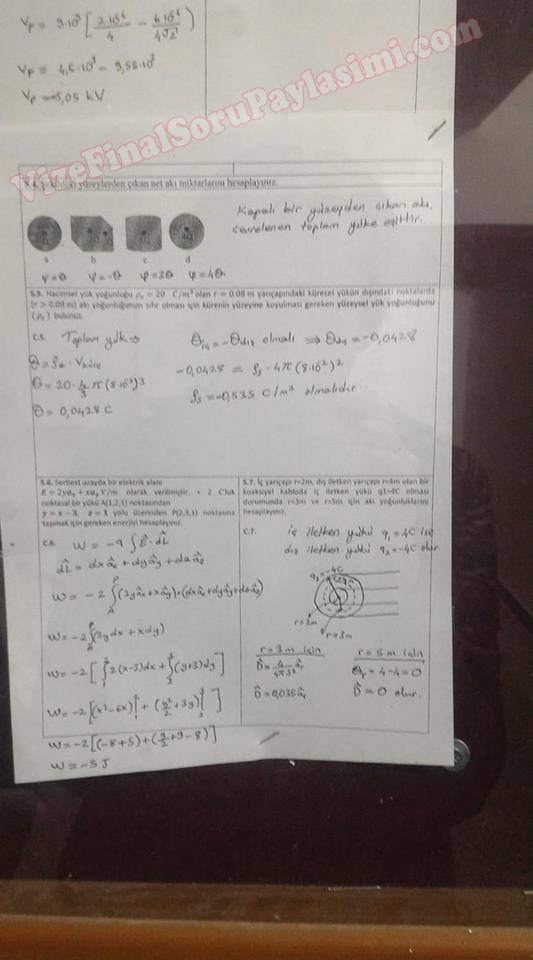 Vp = 9.10⁹ [ 2.10⁻⁶/4 − 6.10⁻⁶/4√2 ]
Vp = 4,5.10³ − 9,55.10³
Vp = −5,05 kV
VizeFinalSoruPaylasimi.com
yüzeylerden çıkan net akı miktarlarını hesaplayınız.
Kapalı bir yüzeyden çıkan akı,
çevrelenen toplam yüke eşittir.
a b c d
ψ=Q ψ=-Q ψ=3Q ψ=4Q
S.5. Hacimsel yük yoğunluğu ρv = 20 C/m³ olan r = 0.08 m yarıçapındaki küresel yükün dışındaki noktalarda
(r > 0.08 m) akı yoğunluğunun sıfır olması için kürenin yüzeyine koyulması gereken yüzeysel yük yoğunluğunu
(ρs) bulunuz.
C.5. Toplam yük ⇒
Q = ρv . Vküre
Q = 20 . 4/3 π (8.10⁻²)³
Q = 0,0428 C
Qiç = −Qdış olmalı ⇒ Qdış = −0,0428
−0,0428 = ρs . 4π (8.10⁻²)²
ρs = −0,535 C/m² olmalıdır.
S.6. Serbest uzayda bir elektrik alanı
E = 2yaₓ + xaᵧ V/m olarak verilmiştir. + 2 C'luk
noktasal bir yükü A(1,2,1) noktasından
y = x − 3, z = 1 yolu üzerinden P(2,3,1) noktasına
taşımak için gereken enerjiyi hesaplayınız.
C.6. W = −q ∫ E . dL
dL = dxâx + dyây + dzâz
W = −2 ∫ (2yâx + xây) . (dxâx + dyây + dzâz)
W = −2 ∫ (2ydx + xdy)
W = −2 [ ∫ 2(x−3)dx + ∫ (y+3)dy ]
W = −2 [ (x²−6x) + (y²/2 + 3y) ]
W = −2 [ (−8+5) + (9/2 + 9 − 8) ]
W = −5 J
S.7. İç yarıçapı r=2m, dış iletken yarıçapı r=4m olan bir
koaksiyel kabloda iç iletken yükü q1=4C olması
durumunda r=3m ve r=5m için akı yoğunluklarını
hesaplayınız.
C.7. iç iletken yükü q₁ = 4C ise
dış iletken yükü q₂ = −4C olur
q₂ = −4C
r=2m
r=3m
r=3m için
D = 4/4π3² âr
D = 0,035 âr
r=5m için
QT = 4−4 = 0
D = 0 olur.